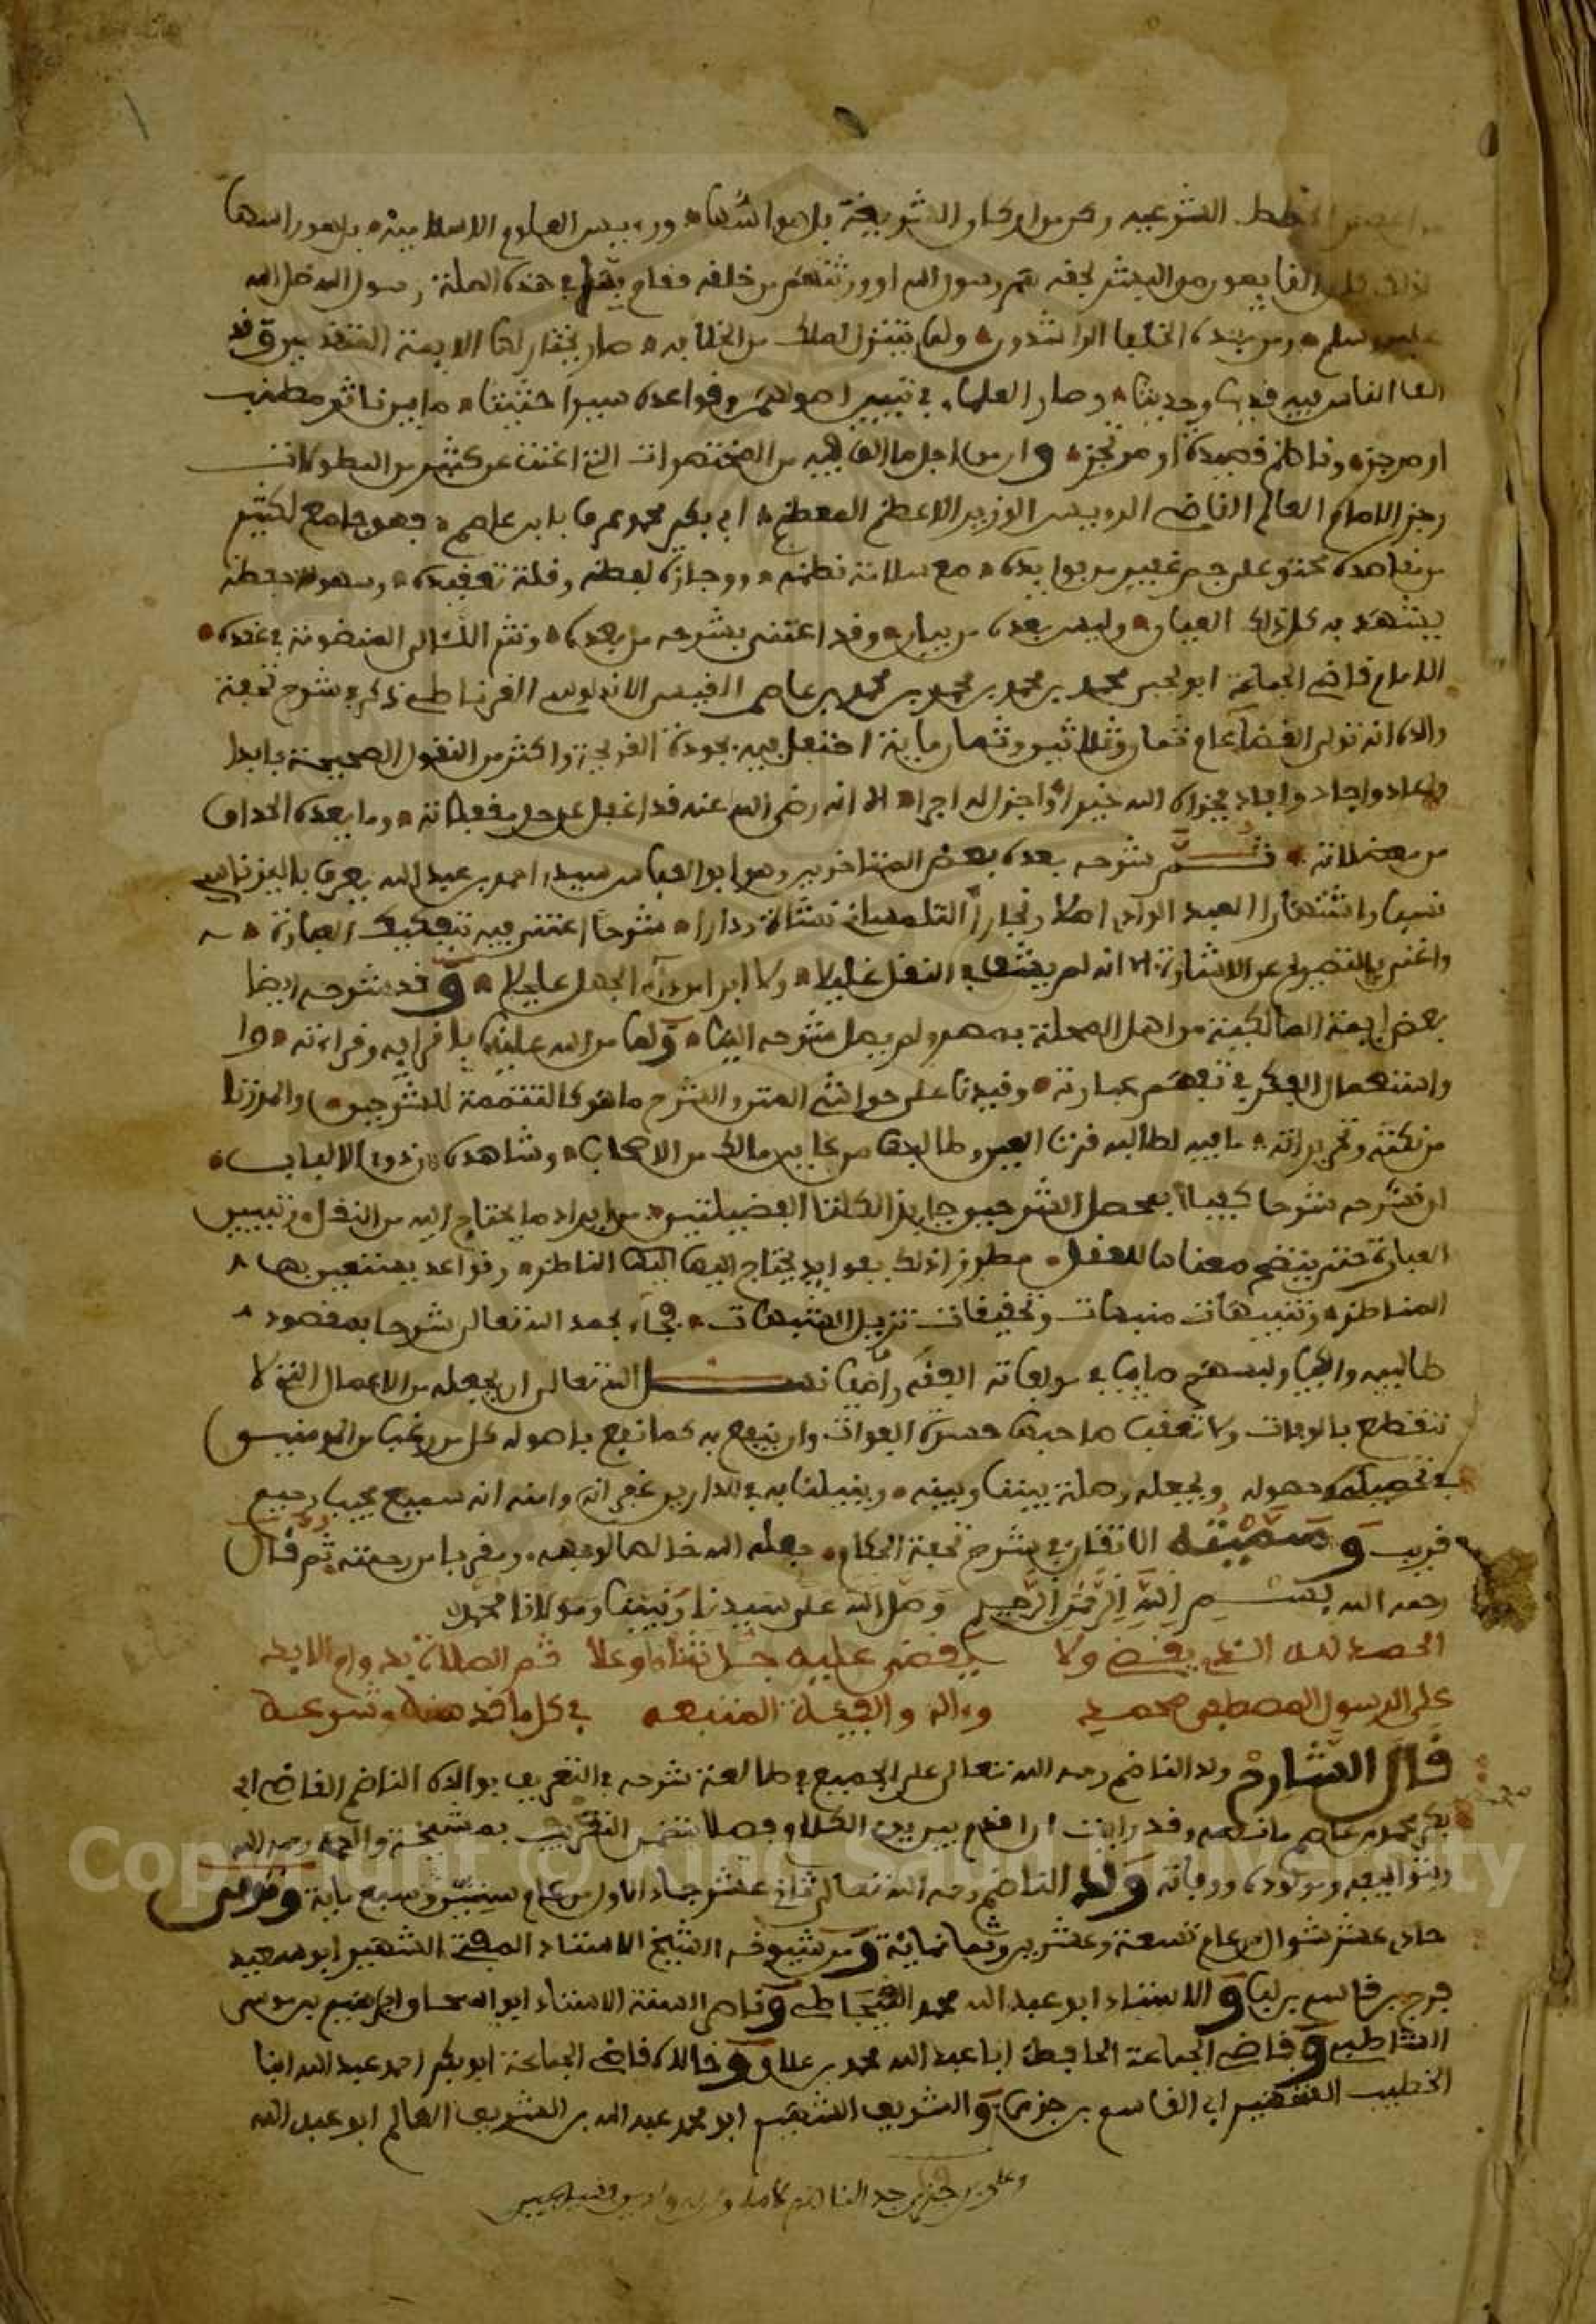 الخطط الشرعيه ركن من اركان الشريعة بل هو اسها ورءيس العلوم الاسلامية بل هو راسها
القايمون من البشر بحقه هم رسول الله او ورثتهم من خلفه فقام بها في هذه الملة رسول الله صلى الله
عليه وسلم ومن بعده الخلفا الراشدون ولما تنزل الملك من الخلافه صار يختار لها الايمة المتقدمين وقد
الف الناس فيه قديما وحديثا وصار العلماء في تبيين اصولهم وقواعده سيرا حثيثا ما بين ناثر مطنب
او موجز وناظم قصيدة او مرتجز وان من اجل ما الف فيه من المختصرات التي اغنت عن كثير من المطولات
رجز الامام العالم القاضي الرءيس الوزير الاعظم المعظم ابي بكر محمد عرف بابن عاصم فهو جامع لكثير
من مقاصده محتو على جم غفير من فوايده مع سلاسة نظمه ووجازة لفظه وقلة تعقيده وسهولة حفظه
يشهد به كل ذلك العيان وليس بعده من بيان وقد اعتنى بشرحه من بعده ونثر اللئالي المنضومة في عقده
الامام قاضي الجماعة ابو يحيى محمد بن محمد بن محمد بن محمد بن عاصم القيسي الاندلسي الغرناطي ذكر في شرح تحفة
والده انه تولى القضاء عام ثمان وثلاثين وثمان ماية احتفل فيه بجودة القريحة واكثر من النقول الصحيحة فابدا
واعاد واجاد وافاد فجزاه الله خيرا واجزل له اجرا الا انه رضي الله عنه قد اغفل عن حل مقفلاته وما يعده الحذاق
من معضلاته ثم شرحه بعده بعض المتاخرين وهو ابو العباس سيدي احمد بن عبد الله يعرف باليزناسي
نسبا واشتهارا العبد الوادي اصلا ونجارا التلمساني نشاة ودارا شرحا اعتنى فيه بتفكيك العبارة
واغنى بالتصريح عن الاشارة الا انه لم يشف في النقل غليلا ولا ابرا من داء الجهل عليلا وقد شرحه ايضا
بعض ايمة المالكية من اهل المحلة بمصر ولم يصل شرحه الينا ولما من الله علينا باقرايه وقراءته وا
واستعمال الفكر في تفهم عبارته وقيدنا على حواشي المتن والشرح ما هو كالتتمة للشرحين وابرزنا
من نكته وتحريراته ما فيه لطالبه قرت العين وطالبها من نجايب مالك من الاصحاب وشاهده ذوي الالباب
ان نشرحه شرحا كفيلا بمحصل الشرحين جايز الكلتا الفضيلتين من ايراد ما يحتاج اليه من النقل وتبيين
العبارة حتى يتضح معناها للعقل مطرزا ذلك بفوايد يحتاج اليها الناظر وقواعد يستعين بها
المناظر وتنبيهات منبهات وتحقيقات تزيل الشبهات فجاء بحمد الله تعالى شرحا بمقصود
طالبيه وافيا ولسقم ما في مولفاته الفقه راقيا نسئل الله تعالى ان يجعله من الاعمال التي لا
تنقطع بالوفات ولا تعقب صاحبها حسرة الفوات وان ينفع به كما نفع باصوله كل من رغب من المومنين
في تحصيله وحصوله ويجعله وصلة بيننا وبينه ويقيلنا به في الدارين غفرانه وامنه انه سميع مجيب رحيم
قريب وسميته الاتقان في شرح تحفة الحكام جعله الله خالصا لوجهه ومقربا من رحمته ثم قال
رحمه الله بسم الله الرحمن الرحيم وصلى الله على سيدنا ونبينا ومولانا محمد
الحمد لله الذي يقضي ولا يقضى عليه جل ثناه وعلا ثم الصلاة بدوام الابد
على الرسول المصطفى محمد وءاله والفيئة المتبعه في كل ما قد سنه وشرعه
قال الشارح ولد الناضم رحمه الله تعالى على الجميع في طالعة شرحه في التعريف بوالده الناضم القاضي ابي
بكر محمد بن عاصم ما نصه وقد رايت ان اقدم بين يدي الكلام فصلا تتضمن التعريف بمشيخة والدي رحمه الله
وتواليفه ومولده ووفاته ولد الناضم رحمه الله تعالى ثاني عشر جمادى الاولى من عام ستين وسبع ماية وتوفي
حادي عشر شوال من عام تسعة وعشرين وثمانمائة ومن شيوخه الشيخ الاستاد المفتي الشهير ابو سعيد
فرج بن قاسم بن لب والاستاد ابو عبد الله محمد القيجاطي وناصر السنة الاستاد ابو اسحاق ابراهيم بن موسى
الشاطبي وقاضي الجماعة الحافظ ابا عبد الله محمد بن علاق وخالاه قاضي الجماعة ابو بكر احمد عبد الله ابنا
الخطيب الشهير ابي القاسم بن جزي والشريف الشهير ابو محمد عبد الله بن الشريف العالم ابو عبد الله
جد الناظم